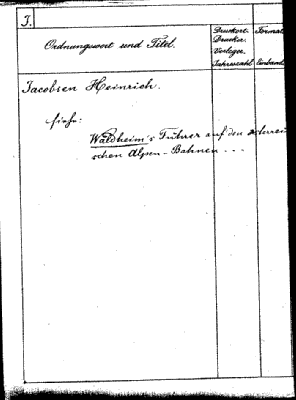 J.
Ordnungswort und Titel.
Druckort.
Drucker.
Verleger.
Jahreszahl.
Format
Einband
Jacobsen Heinrich.
siehe:
Waldheim's Führer auf den österrei
schen Alpen-Bahnen ...